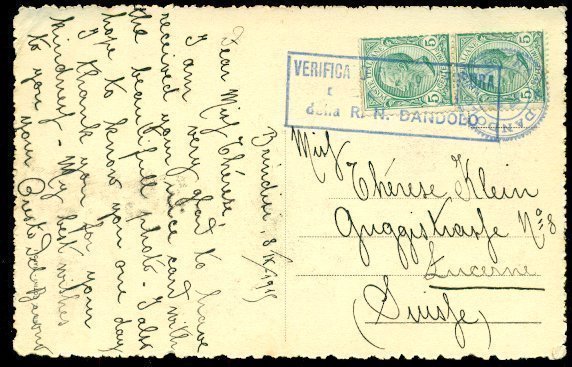 Brindisi, 8/IX 1915
Dear Miss Thérèse,
I am very glad to have
received your nice card with
the beautifull photo. I also
hope to know you one day
I thank you for your
kindness - My best wishes
to you your
VERIFICA CENSURA
della R. N. DANDOLO
DANDOLO
5
5
5
5
Miss
Thérèse Klein
Guggistrasse No 8
Lucerne
(Suisse)